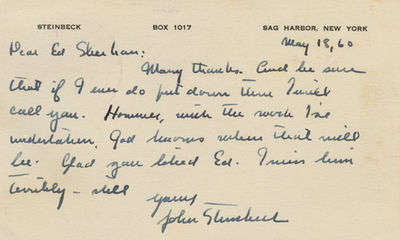 STEINBECK BOX 1017 SAG HARBOR, NEW YORK
May 18, 60
Dear Ed Sheehan:
Many thanks. And be sure
that if I ever do put down there I will
call you. However, with the work I've
undertaken, God knows when that will
be. Glad you liked Ed. I miss him
terribly - still
Yours
John Steinbeck